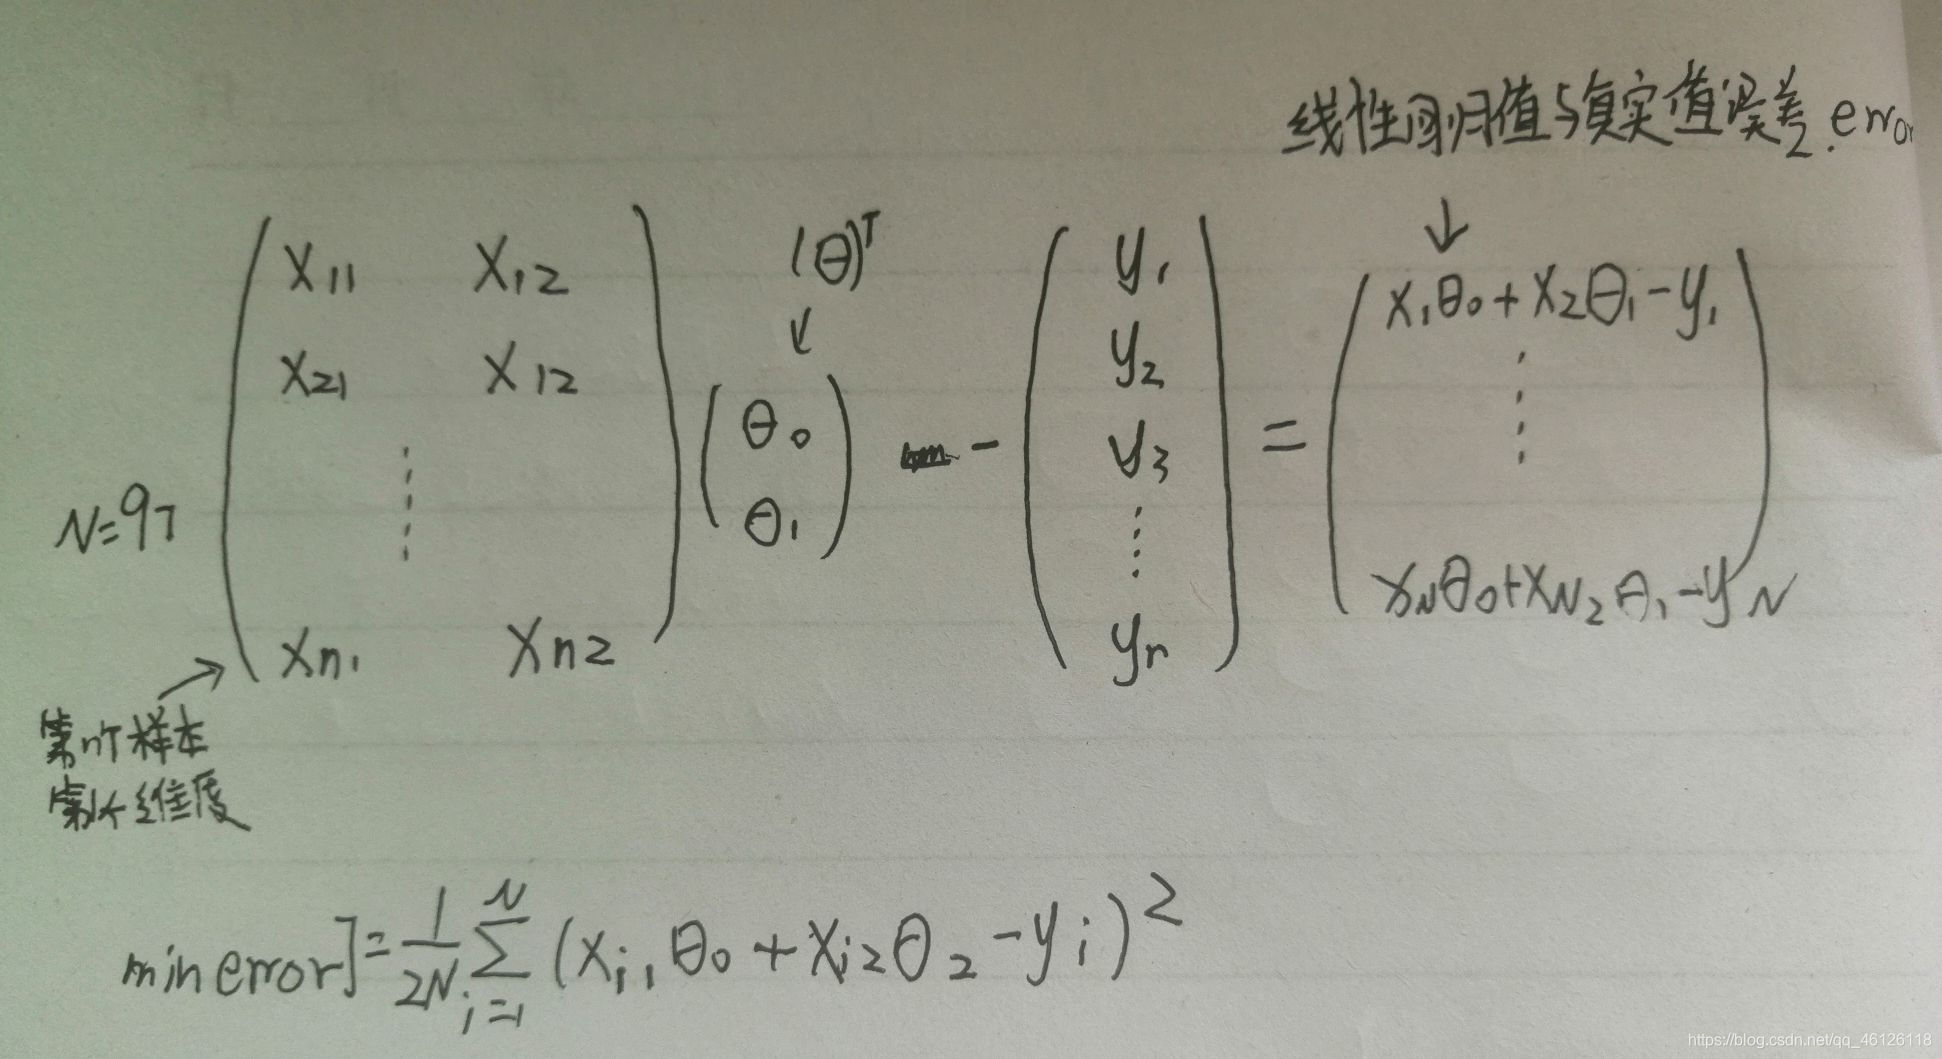 线性回归值与真实值误差.error
↓
(θ)ᵀ
↓
N=97
( x₁₁ x₁₂
x₂₁ x₁₂
⋮
xₙ₁ xₙ₂ )
( θ₀
θ₁ )
-
( y₁
y₂
y₃
⋮
yₙ )
=
( x₁θ₀+x₂θ₁-y₁
⋮
x_Nθ₀+x_N₂θ₁-y_N )
第n个样本
第1个维度
min error J = 1/2N ∑_{i=1}^{N} (x_{i1}θ₀+x_{i2}θ₂-y_i)²
https://blog.csdn.net/qq_46126118